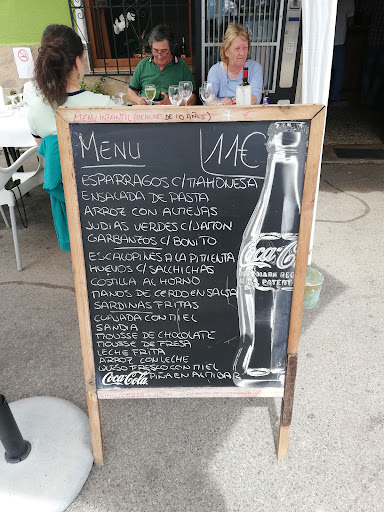 MENU INFANTIL (MENORES DE 10 AÑOS)
MENU 11€
ESPARRAGOS C/MAHONESA
ENSALADA DE PASTA
ARROZ CON ALMEJAS
JUDIAS VERDES C/JAMON
GARBANZOS C/BONITO
ESCALOPINES A LA PIMIENTA
HUEVOS C/SALCHICHAS
COSTILLA AL HORNO
MANOS DE CERDO EN SALSA
SARDINAS FRITAS
CUAJADA CON MIEL
SANDIA
MOUSSE DE CHOCOLATE
MOUSSE DE FRESA
LECHE FRITA
ARROZ CON LECHE
QUESO FRESCO CON MIEL
PIÑA EN ALMIBAR
Coca-Cola
Coca-Cola